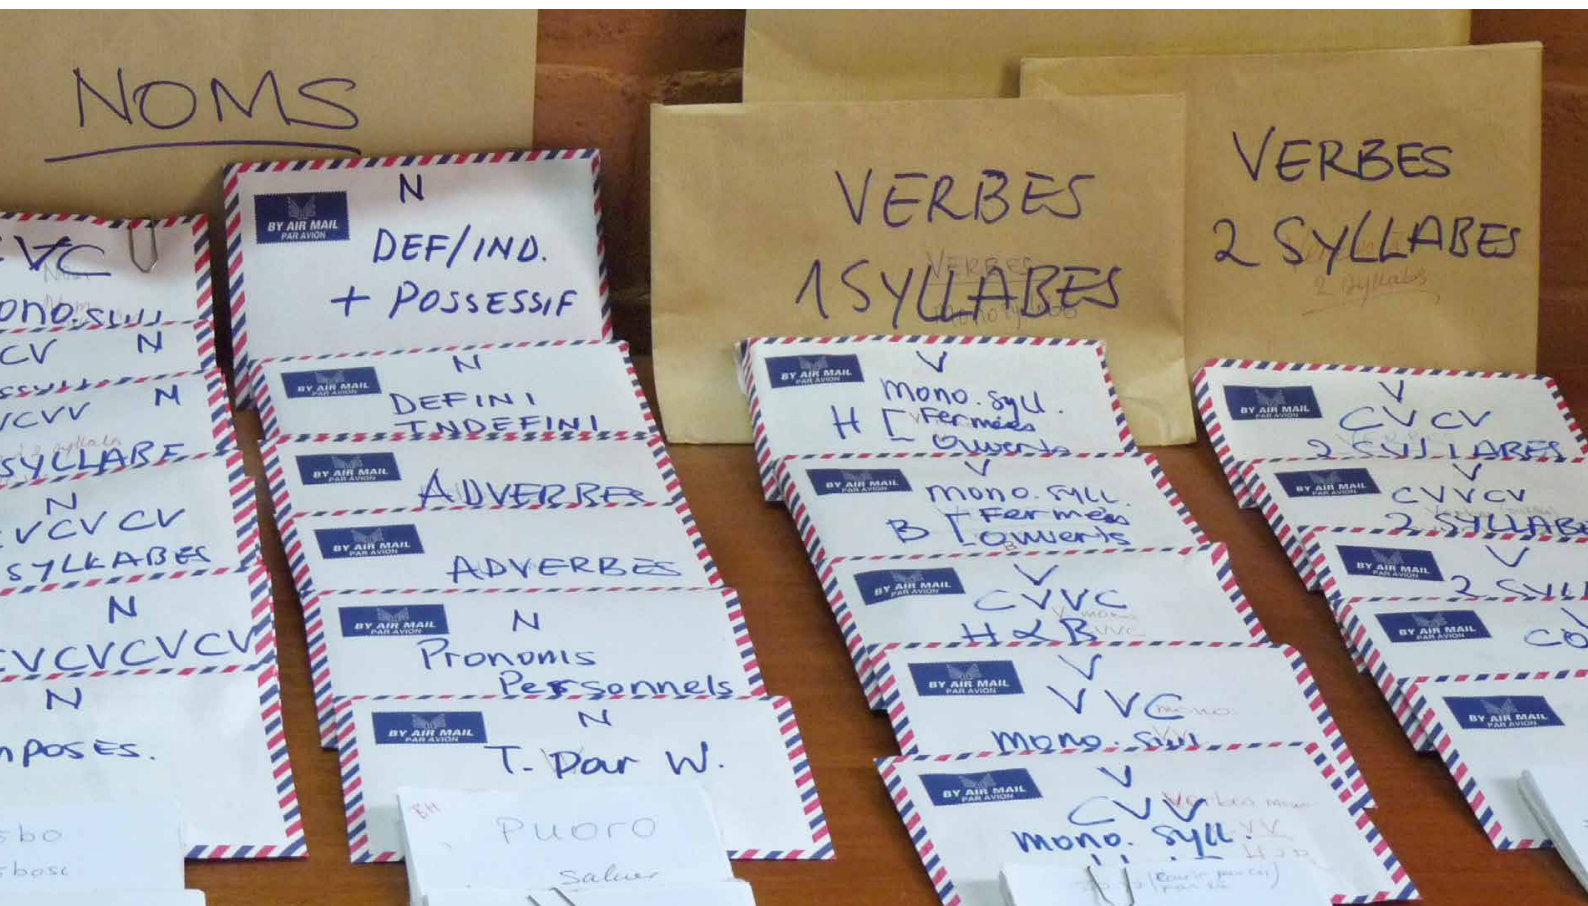 NOMS
VC
CV N
VCVV N
SYLLABE
N
VCVCV
SYLLABES
N
CVCVCVCV
N
MPOSES.
BY AIR MAIL
PAR AVION
N
DEF/IND.
+ POSSESSIF
BY AIR MAIL
PAR AVION
N
DEFINI
INDEFINI
BY AIR MAIL
PAR AVION
ADVERBES
BY AIR MAIL
PAR AVION
ADVERBES
BY AIR MAIL
PAR AVION
N
Pronoms
Personnels
BY AIR MAIL
PAR AVION
N
T. Par W.
BH
PUORO
Saluer
VERBES
1 SYLLABES
VERBES
BY AIR MAIL
PAR AVION
V
mono. syll.
H [ Fermées
ouverts
BY AIR MAIL
PAR AVION
V
mono. syll.
B [ + Fermées
ouverts
BY AIR MAIL
PAR AVION
V
CVVC
H & B
BY AIR MAIL
PAR AVION
V
VVC
mono. syll
BY AIR MAIL
PAR AVION
V
CVV
mono. syll.
Verbes
VERBES
2 SYLLABES
2 Syllabs
BY AIR MAIL
PAR AVION
V
CVCV
2 SYLLABES
BY AIR MAIL
PAR AVION
V
CVVCV
2 SYLLABE
BY AIR MAIL
PAR AVION
V
2 SYLL
BY AIR MAIL
PAR AVION
CO
BY AIR MAIL
PAR AVION